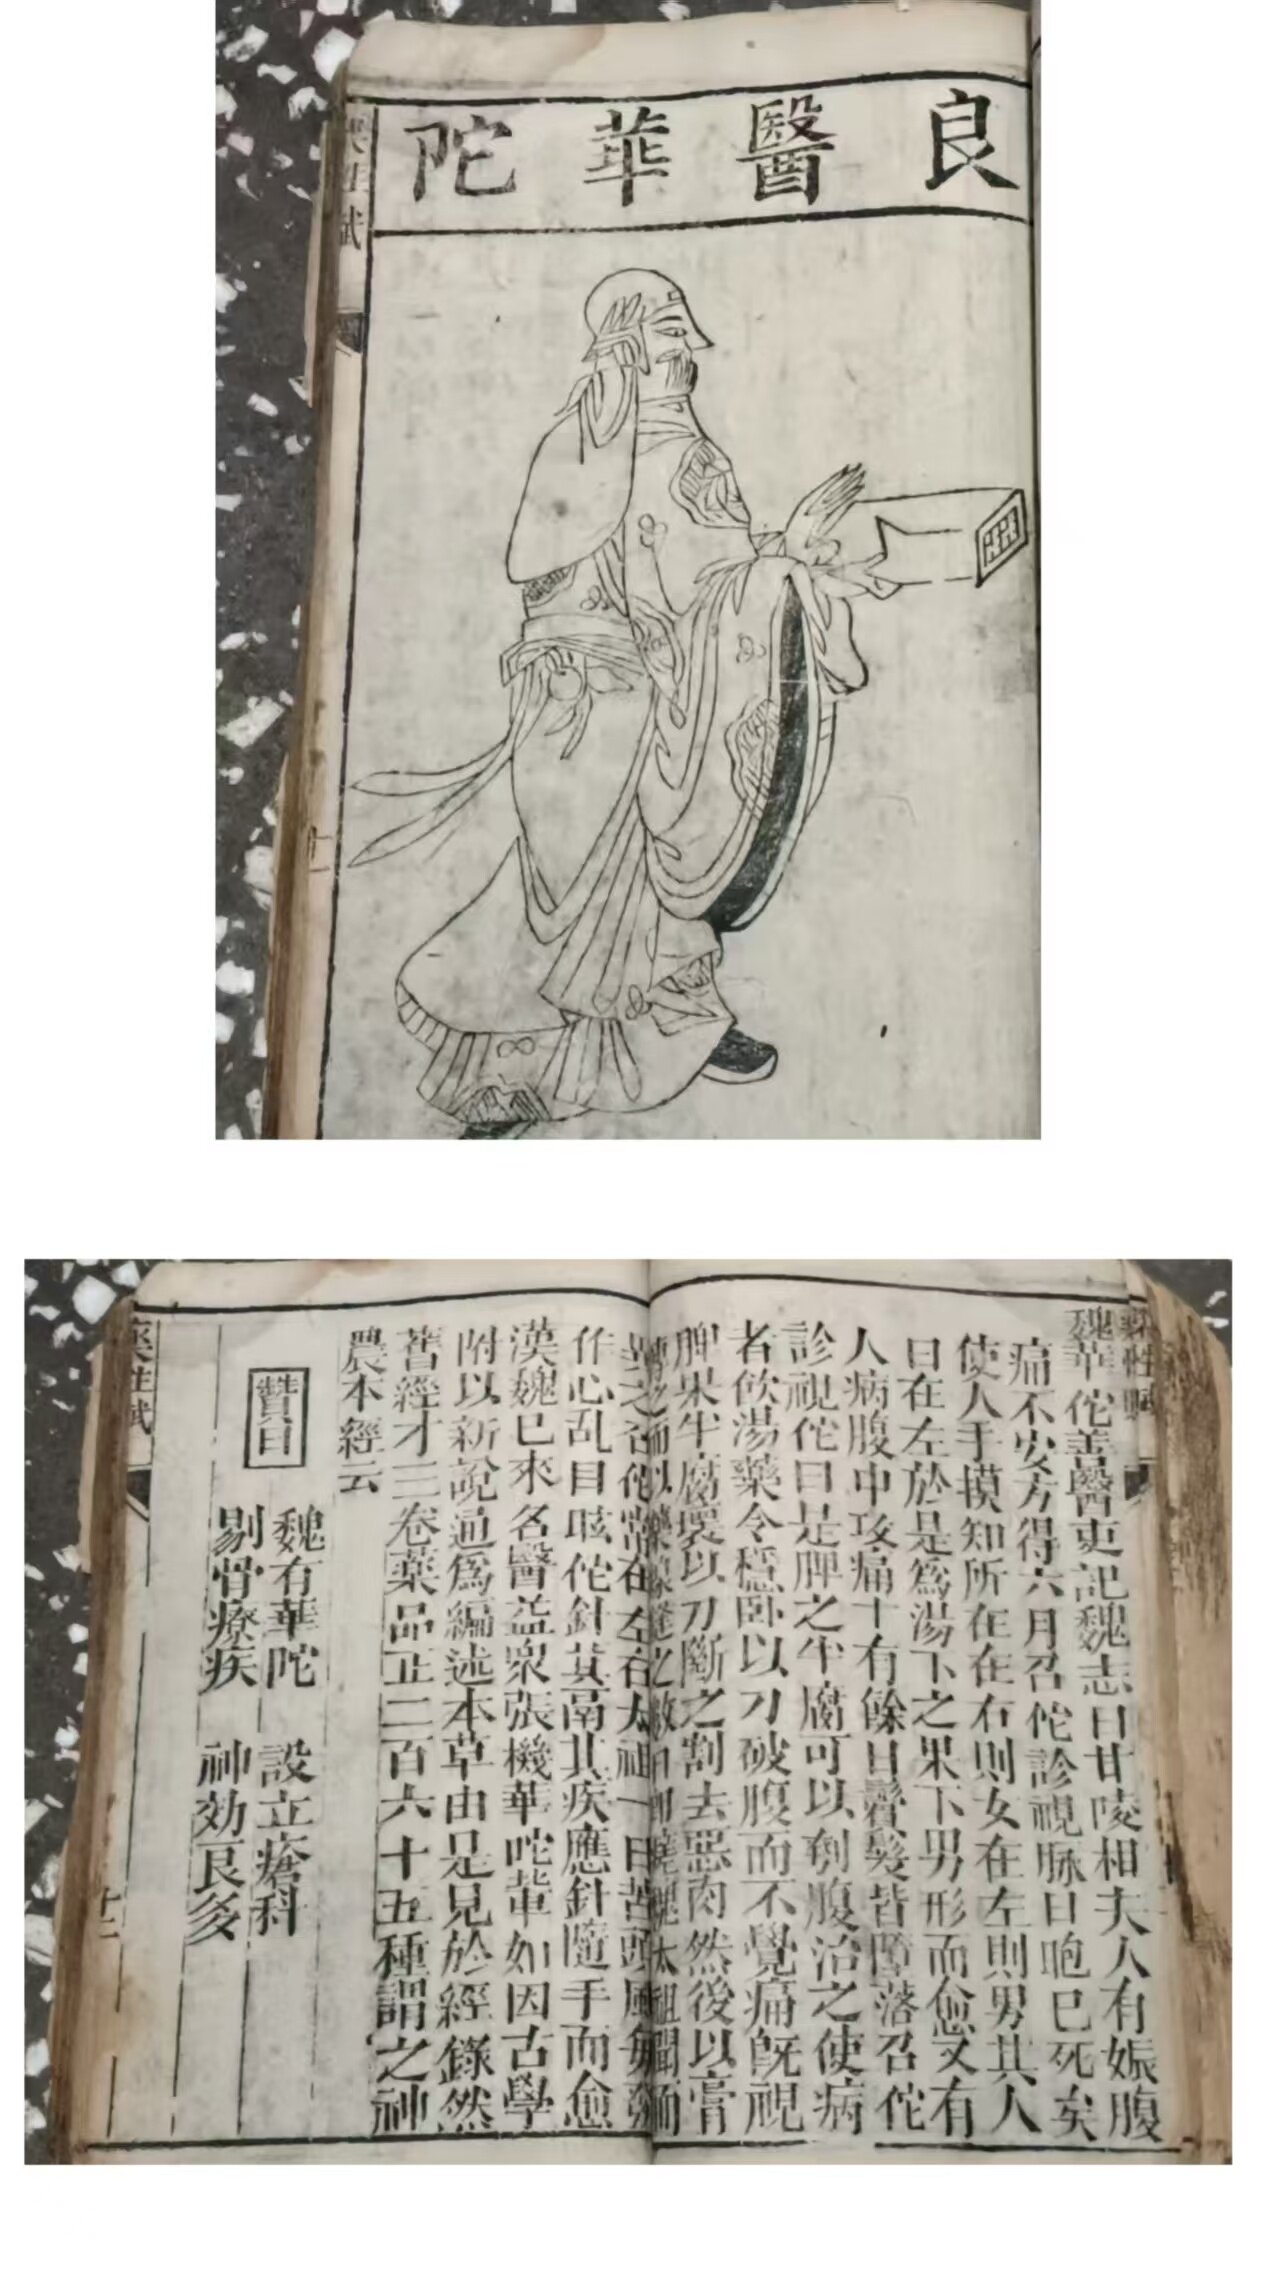 良醫華陀
藥性賦
藥性賦
魏華佗善醫吏記魏志曰甘唛相夫人有娠腹
痛不安方得六月召佗診視脉曰咆已死矣
使人手摸知所在在右則女在左則男其人
曰在左於是為湯下之果下男形而愈又有
人病腹中攻痛十有餘日鬢髮皆墮落召佗
診視佗曰是脾之半腐可以刳腹治之使病
者飲湯藥令穩卧以刀破腹而不覺痛旣視
脾果半腐壞以刀斷之割去惡肉然後以膏
傅之而以藥線縫之敷日即曉魏太祖聞而
異之召佗常在左右太祖一日苦頭風每發
作心乱目眩佗針其鬲其疾應針隨手而愈
漢魏已來名醫益衆張機華咜軰如因古學
附以新說通為編述本草由是見於經錄然
舊經才三卷藥品正二百六十五種謂之神
農本經云
贊曰
魏有華咜 設立瘡科
剔骨療疾 神効良多
藥性賦
十二